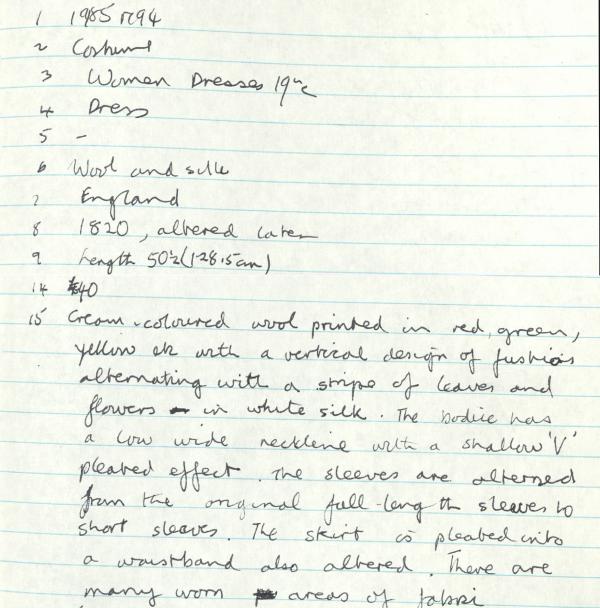 1 1985 r194
2 Costume
3 Women Dresses 19th c
4 Dress
5 -
6 Wool and silk
7 England
8 1820, altered later
9 Length 50½ (128.5cm)
14 £40
15 Cream-coloured wool printed in red, green,
yellow etc with a vertical design of fushias
alternating with a stripe of leaves and
flowers in white silk. The bodice has
a low wide neckline with a shallow 'V'
pleated effect. The sleeves are altered
from the original full-length sleeves to
short sleeves. The skirt is pleated into
a waistband also altered. There are
many worn areas of fabri